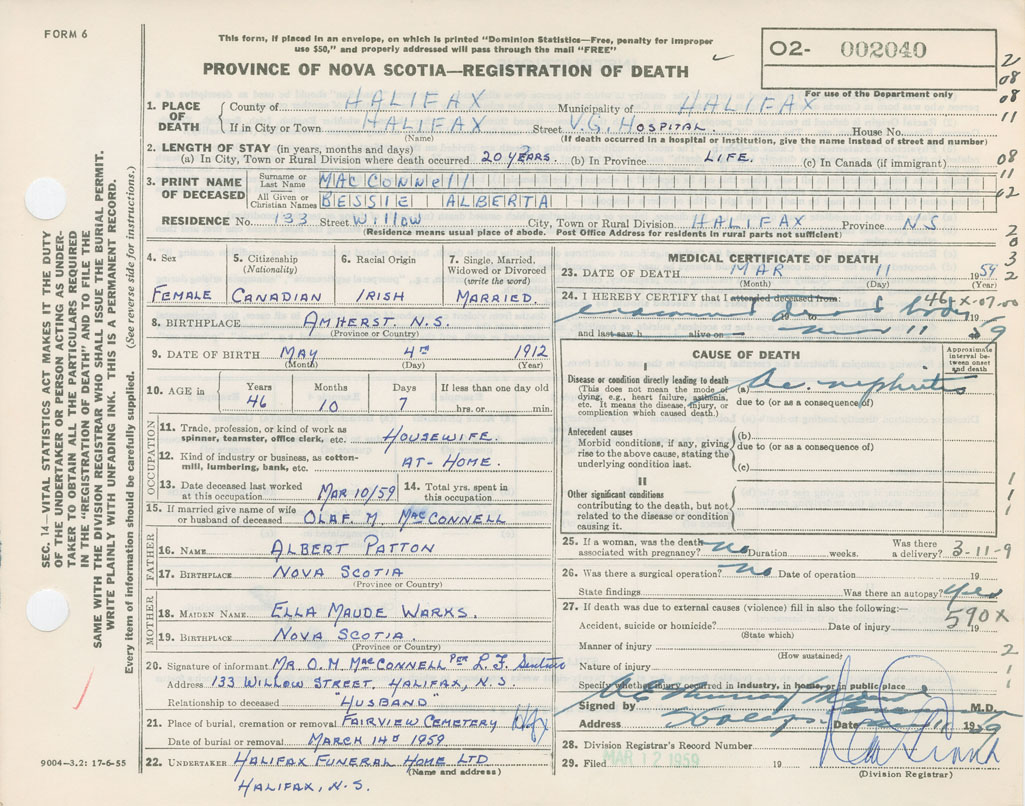 FORM 6
This form, if placed in an envelope, on which is printed "Dominion Statistics—Free, penalty for improper
use $50," and properly addressed will pass through the mail "FREE"
PROVINCE OF NOVA SCOTIA—REGISTRATION OF DEATH
O2- 002040
For use of the Department only
1. PLACE OF DEATH
County of HALIFAX Municipality of HALIFAX
If in City or Town HALIFAX Street V.G. HOSPITAL House No.
(Name) (If death occurred in a hospital or institution, give the name instead of street and number)
2. LENGTH OF STAY (in years, months and days)
(a) In City, Town or Rural Division where death occurred 20 YEARS. (b) In Province LIFE. (c) In Canada (if immigrant)
3. PRINT NAME OF DECEASED
Surname or Last Name MAC CONNELL
All Given or Christian Names BESSIE ALBERTA
RESIDENCE No. 133 Street Willow City, Town or Rural Division HALIFAX Province NS
(Residence means usual place of abode. Post Office Address for residents in rural parts not sufficient)
4. Sex
FEMALE
5. Citizenship (Nationality)
CANADIAN
6. Racial Origin
IRISH
7. Single, Married, Widowed or Divorced (write the word)
MARRIED.
8. BIRTHPLACE AMHERST. N.S.
(Province or Country)
9. DATE OF BIRTH MAY 4TH 1912
(Month) (Day) (Year)
10. AGE in Years Months Days If less than one day old
46 10 7 hrs. or min.
OCCUPATION
11. Trade, profession, or kind of work as
spinner, teamster, office clerk, etc. HOUSEWIFE.
12. Kind of industry or business, as cotton-
mill, lumbering, bank, etc. AT-HOME.
13. Date deceased last worked at this occupation MAR 10/59 14. Total yrs. spent in this occupation
15. If married give name of wife
or husband of deceased OLAF. M. MACCONNELL
FATHER
16. NAME ALBERT PATTON
17. BIRTHPLACE NOVA SCOTIA
(Province or Country)
MOTHER
18. MAIDEN NAME ELLA MAUDE WARKS.
19. BIRTHPLACE NOVA SCOTIA.
(Province or Country)
20. Signature of informant MR. O.M. MACCONNELL PER L.F.
Address 133 WILLOW STREET. HALIFAX, N.S.
Relationship to deceased "HUSBAND"
21. Place of burial, cremation or removal FAIRVIEW CEMETERY Hfx
Date of burial or removal MARCH 14TH 1959
22. UNDERTAKER HALIFAX FUNERAL HOME LTD
(Name and address)
HALIFAX, N.S.
MEDICAL CERTIFICATE OF DEATH
23. DATE OF DEATH MAR 11 1959
(Month) (Day) (Year)
24. I HEREBY CERTIFY that I attended deceased from: 46 X-07.00
examined dead body 19
to
and last saw h alive on Mar 11 59
CAUSE OF DEATH
Approximate interval between onset and death
I
Disease or condition directly leading to death (a) Ac. nephritis
(This does not mean the mode of dying, e.g., heart failure, asthenia, etc. It means the disease, injury, or complication which caused death.)
due to (or as a consequence of)
Antecedent causes
Morbid conditions, if any, giving rise to the above cause, stating the underlying condition last.
(b)
due to (or as a consequence of)
(c)
II
Other significant conditions
contributing to the death, but not related to the disease or condition causing it.
25. If a woman, was the death associated with pregnancy? no Duration weeks. Was there a delivery? 3-11-9
26. Was there a surgical operation? no Date of operation 19
State findings Was there an autopsy? yes
27. If death was due to external causes (violence) fill in also the following:—
590X
Accident, suicide or homicide? Date of injury 19
(State which)
Manner of injury
(How sustained)
Nature of injury
Specify whether injury occurred in industry, in home, or in public place
Signed by M.D.
Address Halifax Date Mar 11 1959
28. Division Registrar's Record Number
29. Filed MAR 12 1959 19
(Division Registrar)
2
08
08
11
08
11
02
2
0
3
2
1
1
1
2
1
1
SEC. 14—VITAL STATISTICS ACT MAKES IT THE DUTY
OF THE UNDERTAKER OR PERSON ACTING AS UNDER-
TAKER TO OBTAIN ALL THE PARTICULARS REQUIRED
IN THE "REGISTRATION OF DEATH" AND TO FILE THE
SAME WITH THE DIVISION REGISTRAR WHO SHALL ISSUE THE BURIAL PERMIT.
WRITE PLAINLY WITH UNFADING INK. THIS IS A PERMANENT RECORD.
Every item of information should be carefully supplied. (See reverse side for instructions.)
9004-3.2: 17-6-55